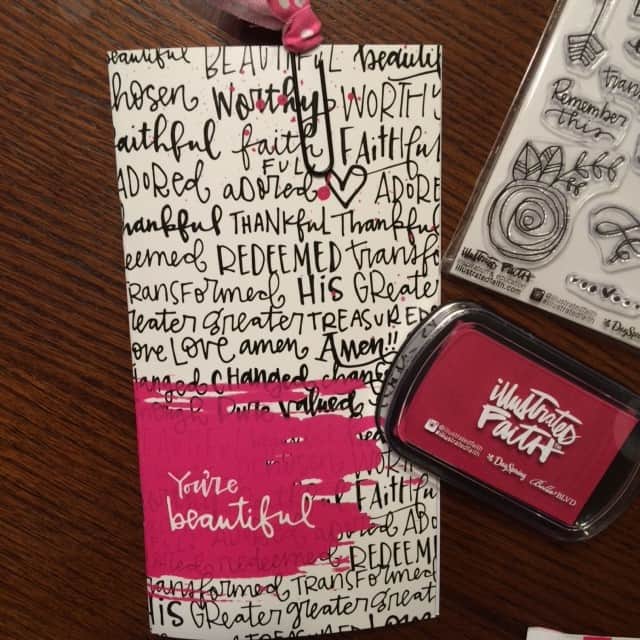 beautiful BEAUTIFUL beautiful
chosen worthy WORTHY
faithful faith FAITHFUL
FUL
ADORED adored ADORE
hankful THANKFUL Thankful
eemed REDEEMED transfo
RANSFORMED HIS GREATER
reater greater TREASURED
ove LOVE amen Amen!!
hanged CHANGED chan
PURE valued
WORT
FAITHFUL
You're
beautiful
adored ADO
redeemed REDEEME
ansformed TRANSFORMED
HIS Greater greater great
tran
Remember
this
illustrated faith
@illustratedfaith
illustratedfaith.com
DaySpring
illustrated
FAITH
@illustratedfaith
#illustratedfaith
DaySpring Bella BLVD